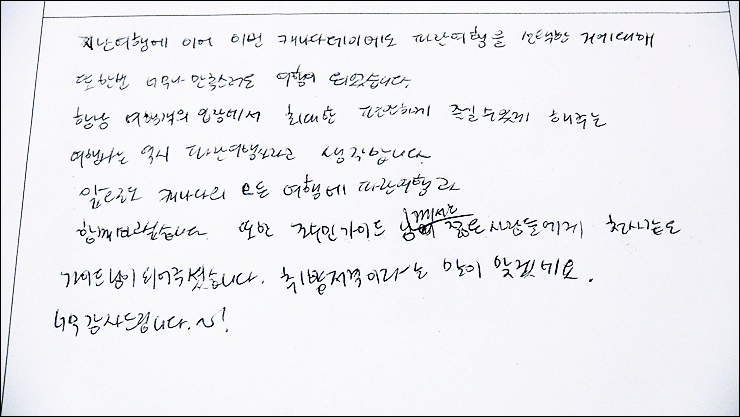 지난여행에 이어 이번 캐나다데이에도 파란여행을 선택한 저에대해
또한번 너무나 만족스러운 여행이 되었습니다.
항상 여행객의 입장에서 최대한 편안하게 즐길수있게 해주는
여행사는 역시 파란여행사라고 생각합니다
앞으로도 캐나다의 모든 여행에 파란여행과
함께하고싶습니다. 또한 가이드 님께서는 젊은사람들에게
가이드님이 되어주셨습니다. 취향저격이라는 말이 맞겠네요.
너무 감사드립니다.~!